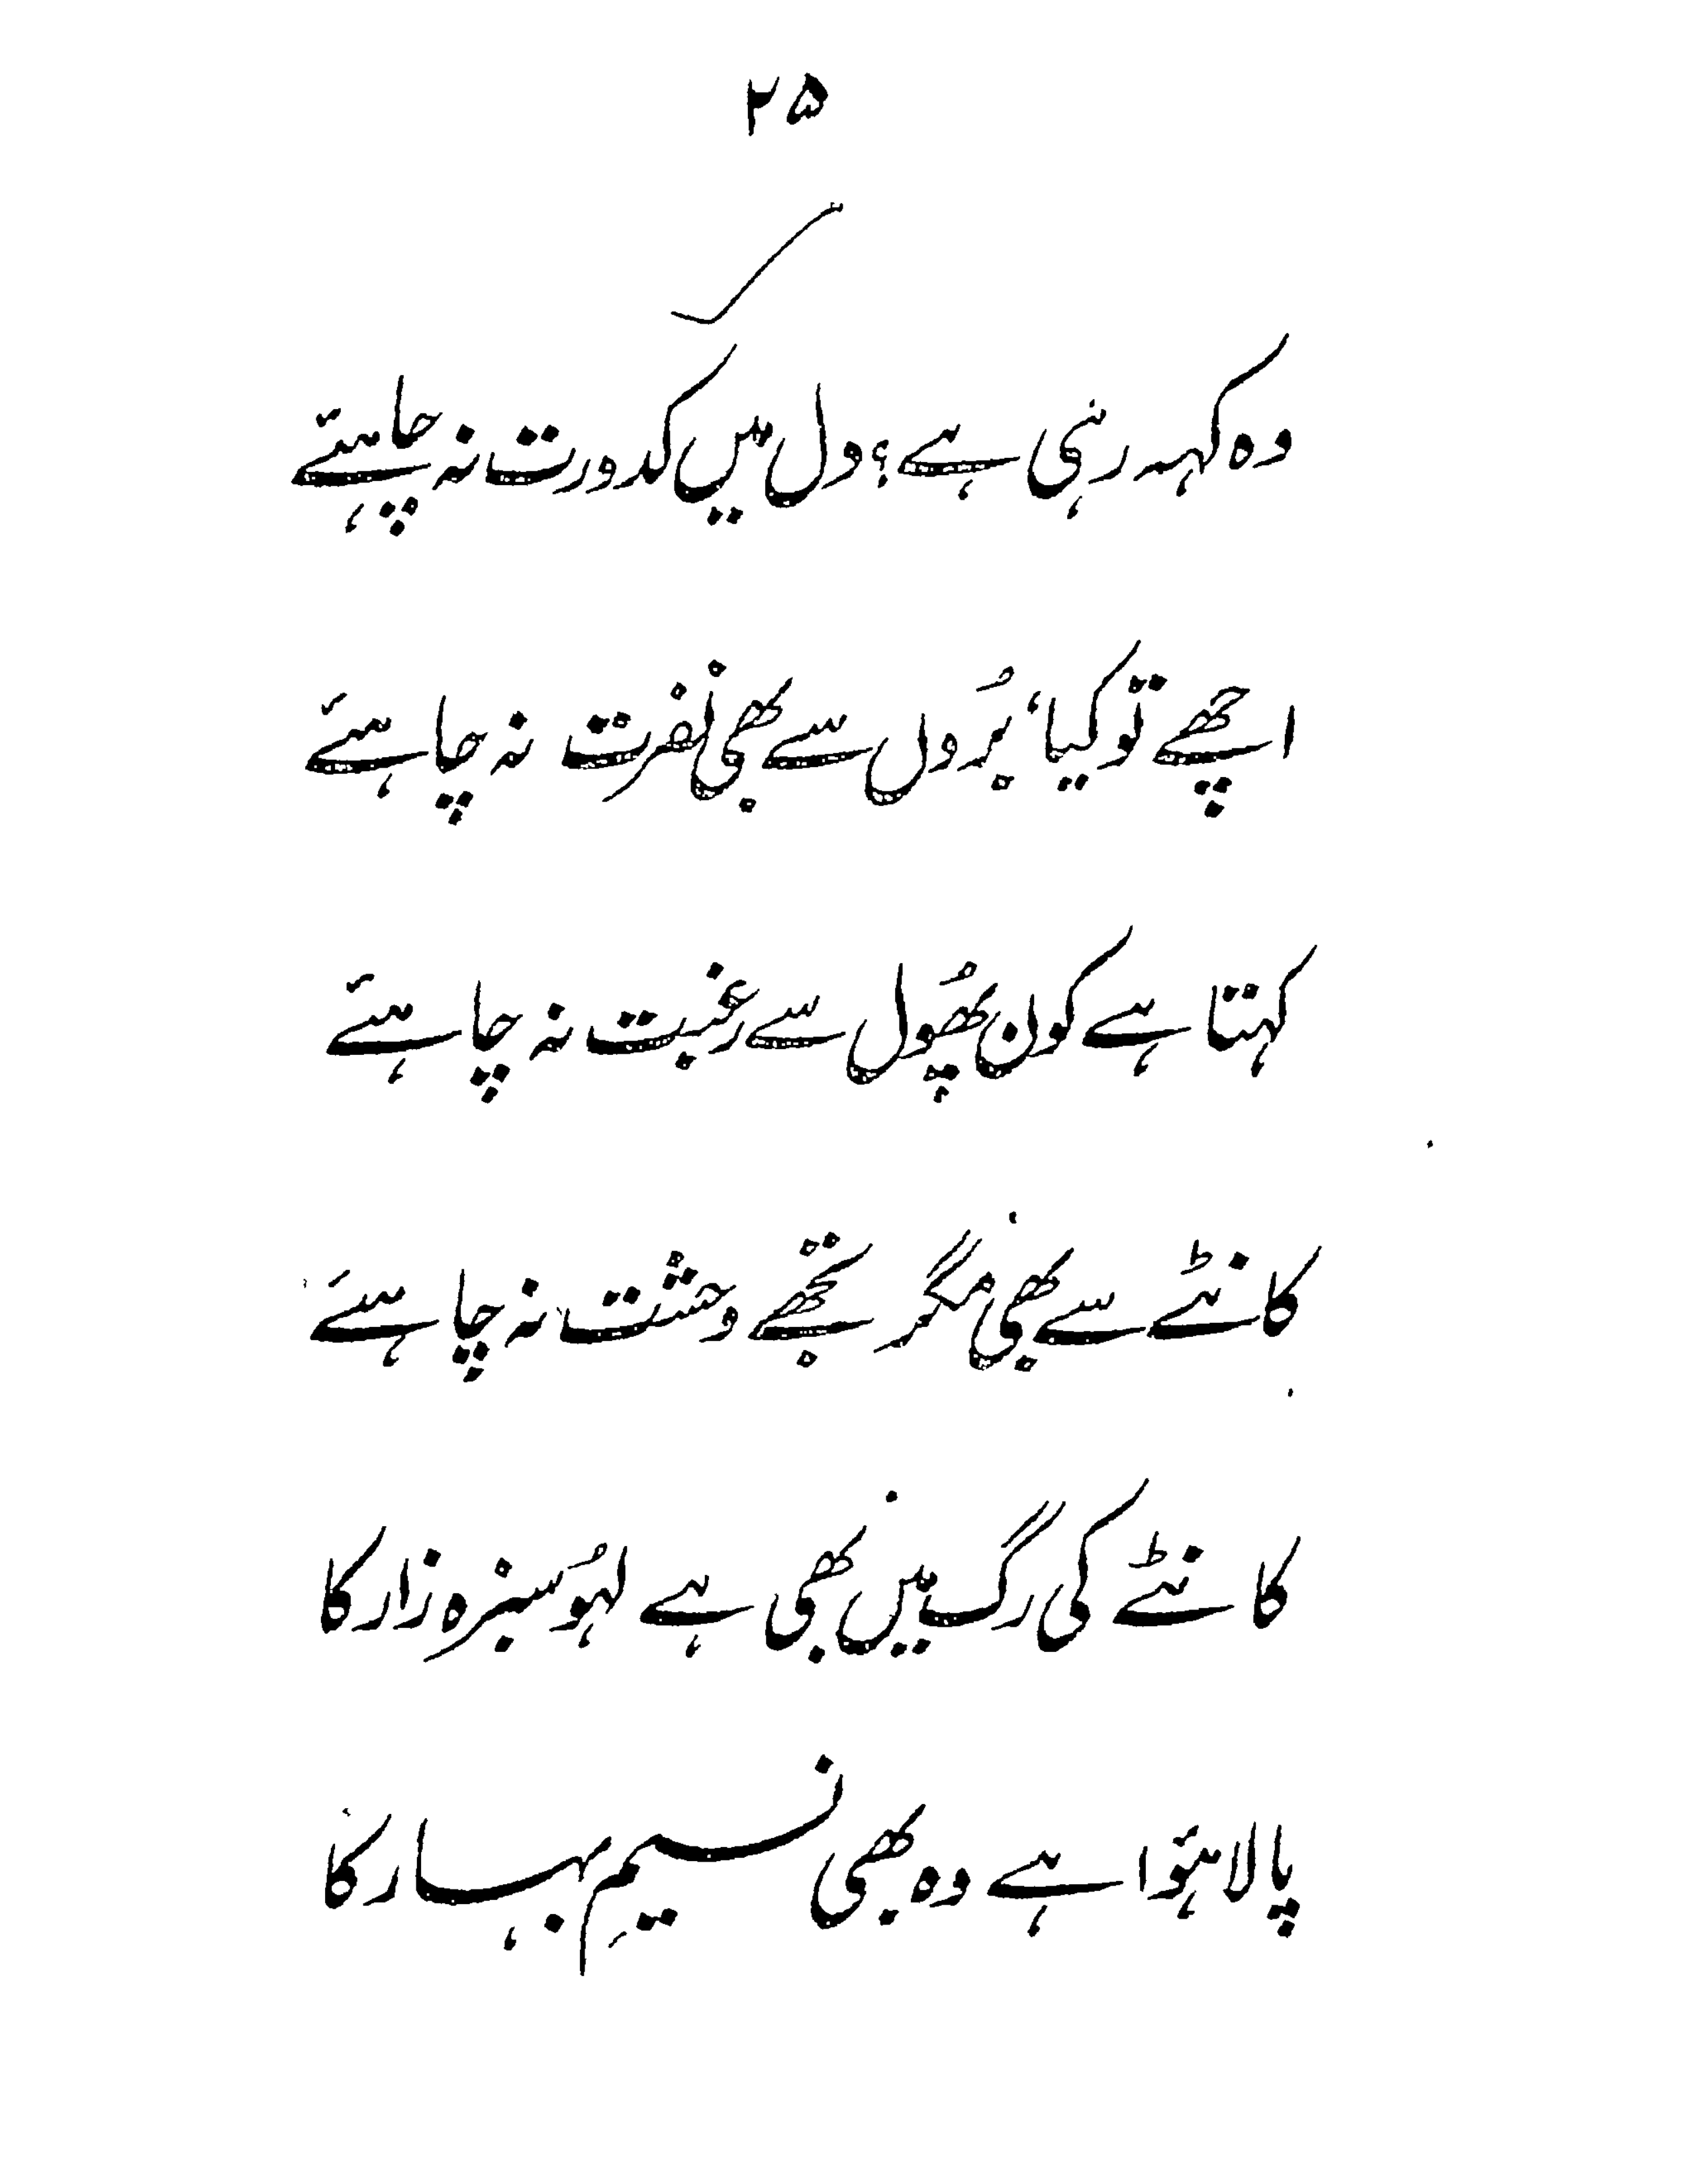 ۲۵
وہ کہہ رہی ہے؛ دل میں کدورت نہ چاہئے
اچھے تو کیا، بُروں سے بھی نفرت نہ چاہئے
کہتا ہے کون پھُول سے رغبت نہ چاہئے
کانٹے سے بھی مگر تجھے وحشت نہ چاہئے
کانٹے کی رگ میں بھی ہے لہُو سبزہ زار کا
پالا ہئوا ہے وہ بھی نسیمِ بہار کا